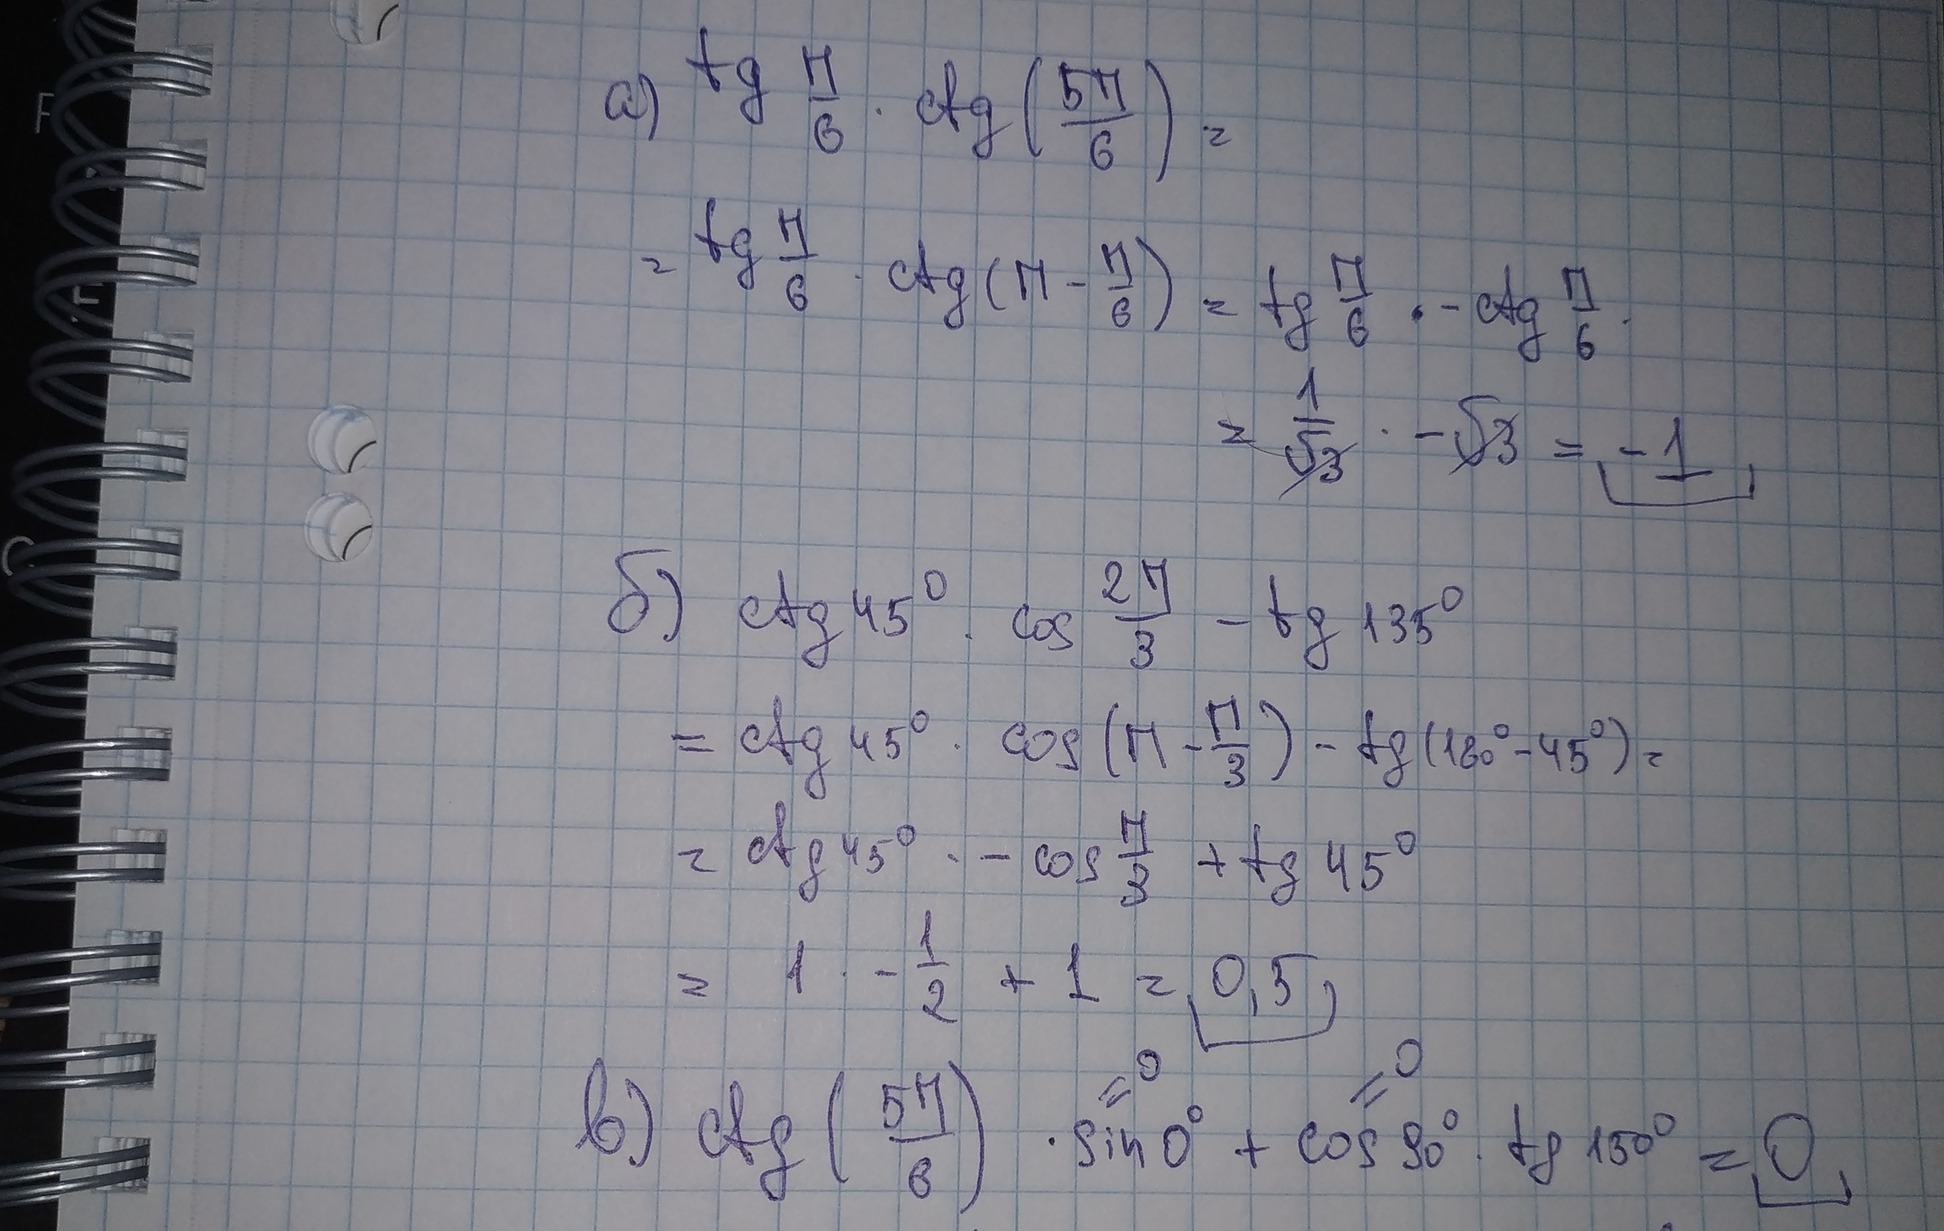 а) tg π/6 · ctg (5π/6) =
= tg π/6 · ctg (π - π/6) = tg π/6 · - ctg π/6 .
= 1/√3 · - √3 = -1
б) ctg 45° · cos 2π/3 - tg 135°
= ctg 45° · cos (π - π/3) - tg (180° - 45°) =
= ctg 45° · - cos π/3 + tg 45°
= 1 · - 1/2 + 1 = 0,5
=0 =0
в) ctg (5π/6) · sin 0° + cos 90° · tg 150° = 0